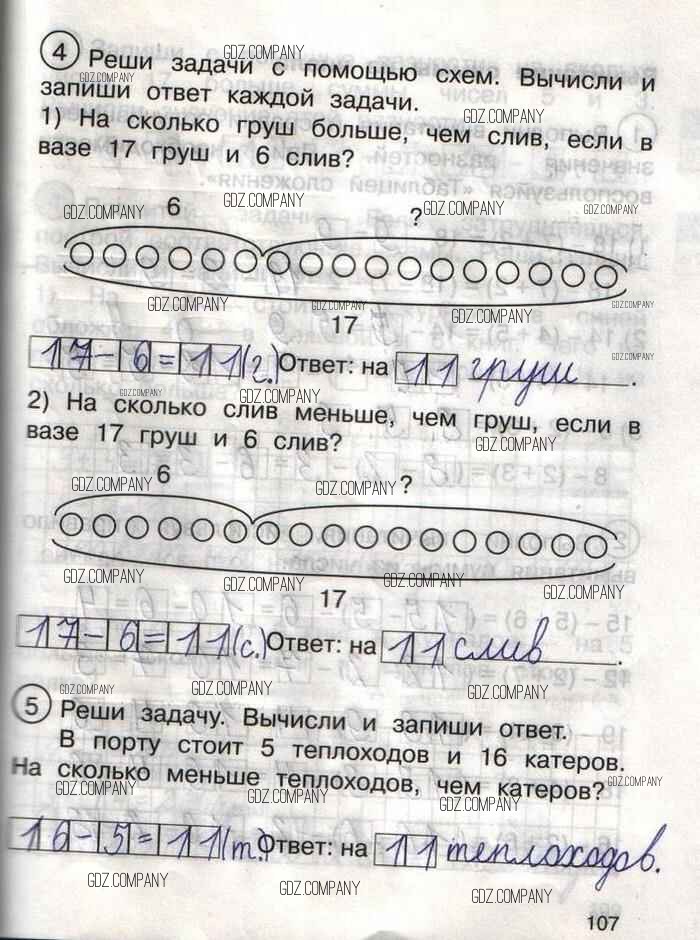 4 Реши задачи с помощью схем. Вычисли и
запиши ответ каждой задачи.
1) На сколько груш больше, чем слив, если в
вазе 17 груш и 6 слив?
6 ?
17
17-6=11(г.) Ответ: на 11 груш.
2) На сколько слив меньше, чем груш, если в
вазе 17 груш и 6 слив?
6 ?
17
17-6=11(с.) Ответ: на 11 слив.
5 Реши задачу. Вычисли и запиши ответ.
В порту стоит 5 теплоходов и 16 катеров.
На сколько меньше теплоходов, чем катеров?
16-5=11(т.) Ответ: на 11 теплоходов.
107
GDZ.COMPANY